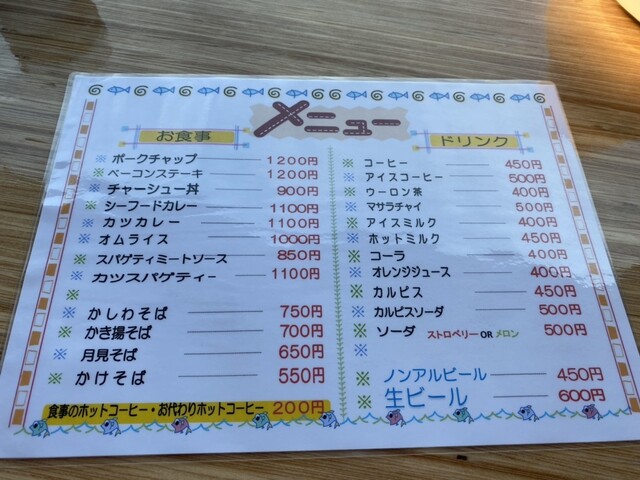 メニュー
お食事
※ ポークチャップ 1200円
※ ベーコンステーキ 1200円
※ チャーシュー丼 900円
※ シーフードカレー 1100円
※ カツカレー 1100円
※ オムライス 1000円
※ スパゲティミートソース 850円
※ カツスパゲティー 1100円
※
※ かしわそば 750円
※ かき揚そば 700円
※ 月見そば 650円
※ かけそば 550円
食事のホットコーヒー・お代わりホットコーヒー 200円
ドリンク
※ コーヒー 450円
※ アイスコーヒー 500円
※ ウーロン茶 400円
※ マサラチャイ 500円
※ アイスミルク 400円
※ ホットミルク 450円
※ コーラ 400円
※ オレンジジュース 400円
※ カルピス 450円
※ カルピスソーダ 500円
※ ソーダ ストロベリー OR メロン 500円
※
※ ノンアルビール 450円
※ 生ビール 600円